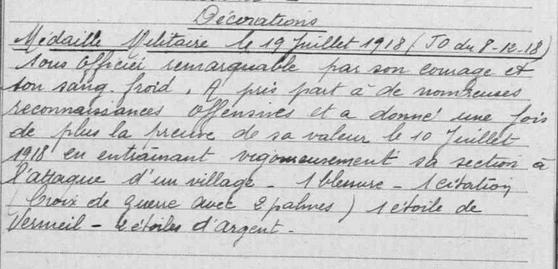 Décorations
Médaille Militaire le 19 Juillet 1918 (JO du 8-12-18)
Sous Officier remarquable par son courage et
son sang froid. A pris part à de nombreuses
reconnaissances offensives et a donné une fois
de plus la preuve de sa valeur le 10 Juillet
1918 en entraînant vigoureusement sa section à
l'attaque d'un village - 1 blessure - 1 citation
(Croix de guerre avec 2 palmes) 1 étoile de
Vermeil - 2 étoiles d'argent -